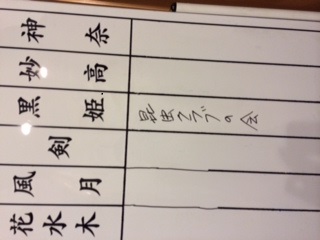 神奈
妙高
黒姫 昆虫クラブの会
剣
風月
花水木